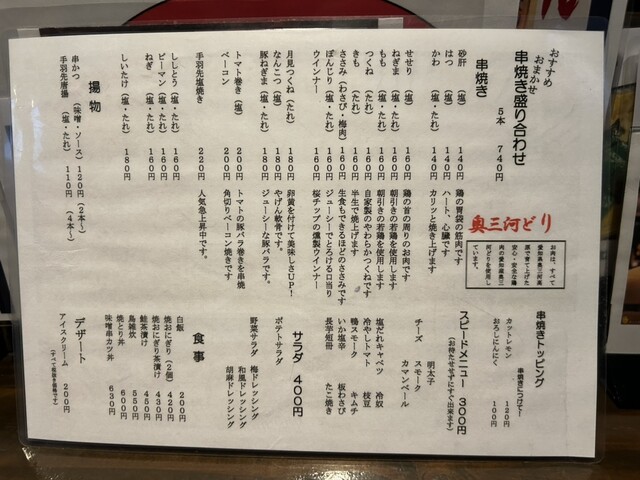 おすすめ
おまかせ
串焼き盛り合わせ
5本 740円
串焼き
砂肝 (塩・たれ) 140円 鶏の胃袋の筋肉です
はつ (塩・たれ) 140円 ハート、心臓です
かわ (塩・たれ) 140円 カリッと焼き上げます
せせり (塩) 160円 鶏の首の周りのお肉です
ねぎま (塩・たれ) 160円 朝引きの若鶏を使用します
もも (塩・たれ) 160円 朝引きの若鶏を使用します
つくね (たれ) 160円 自家製のやわらかつくねです
きも (たれ) 160円 半生で焼上げます
ささみ (わさび・梅肉) 160円 生食もできるほどのささみです
ぼんじり (塩・たれ) 160円 ジューシーでとろける口当り
ウインナー 160円 桜チップの燻製ウインナー
月見つくね (たれ) 180円 卵黄を付けて美味しさUP!
なんこつ (塩) 180円 やげん軟骨です。
豚ねぎま (塩・たれ) 180円 ジューシーな豚バラです。
トマト巻き (塩) 200円 トマトの豚バラ巻きを串焼
ベーコン 200円 角切りベーコン焼きです
手羽先塩焼き 220円 人気急上昇中です。
ししとう (塩・たれ) 160円
ピーマン (塩・たれ) 160円
ねぎ (塩・たれ) 160円
しいたけ (塩・たれ) 180円
揚物
串かつ (味噌・ソース) 120円 (2本〜)
手羽先唐揚 (塩・たれ) 110円 (4本〜)
奥三河どり
お肉は、すべて
愛知県奥三河高
原で育て上げた
安心・安全な鶏
肉の愛知県奥三
河どりを使用し
ています。
串焼きトッピング
串焼きにつけて!
カットレモン 120円
おろしにんにく 100円
スピードメニュー 300円
(お待たせせずにすぐ出来ます)
明太子
チーズ スモーク
カマンベール
塩だれキャベツ 冷奴
冷やしトマト 枝豆
鴨スモーク キムチ
いか塩辛 板わさび
長芋短冊 たこ焼き
サラダ 400円
ポテトサラダ 梅ドレッシング
野菜サラダ 和風ドレッシング
胡麻ドレッシング
食事
白飯 200円
焼おにぎり (2個) 420円
焼おにぎり茶漬け 430円
鮭茶漬け 450円
鳥雑炊 550円
焼とり丼 600円
味噌串カツ丼 630円
デザート
アイスクリーム 200円
(すべて税抜き価格です)